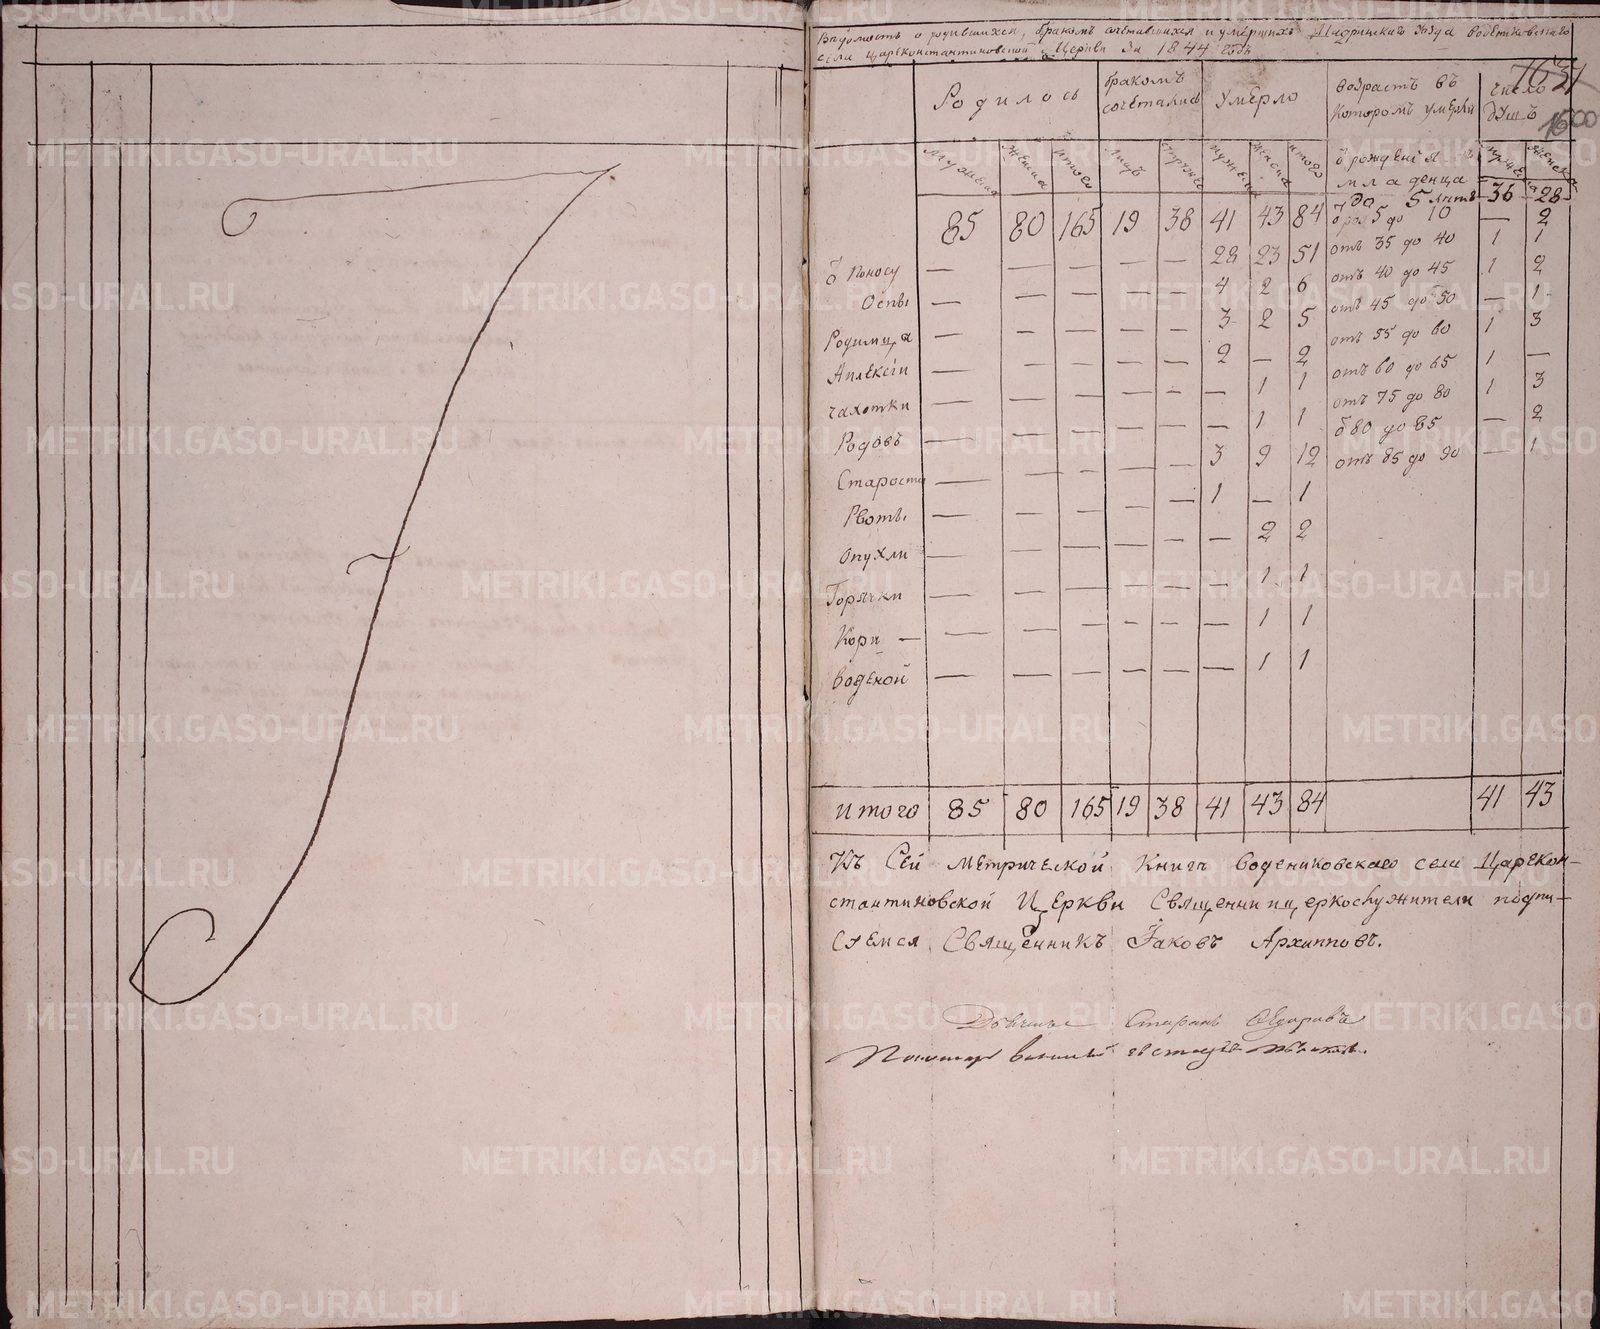 Вѣдомость о родившихся, бракомъ сочетавшихся и умершихъ Шадринскаго Уѣзда
села Цареконстантиновской Церкви За 1844 годъ
7637
1600
Родилось бракомъ сочетались умерло возрастъ въ которомъ умерли число душъ
мужеска женска итого лицъ мужеска женска итого ѿ рожденія младенца мужеска женска
до 5 лѣтъ 36 28
85 80 165 19 38 41 43 84 5 до 10 — 2
ѿ Поносу — — — — — 28 23 51 отъ 35 до 40 1 1
Оспы — — — — — 4 2 6 отъ 40 до 45 1 2
Родимца — — — — — 3 2 5 отъ 45 до 50 — 1
Аплексіи — — — — — 2 — 2 отъ 55 до 60 1 3
чахотки — — — — — — 1 1 отъ 60 до 65 1 —
Родовъ — — — — — — 1 1 отъ 75 до 80 1 3
Старости — — — — — 3 9 12 ѿ 80 до 85 — 2
Рвоты — — — — — 1 — 1 отъ 85 до 90 — 1
Опухли — — — — — — 2 2
Горячки — — — — — — 1 1
Кори — — — — — — 1 1
Воденой — — — — — — 1 1
итого 85 80 165 19 38 41 43 84 41 43
Къ Сей метрической Книгѣ Водениковскаго села Царекон-
стантиновской Церкви Священнице́ркослужители подпи-
Сѧемся Священникъ Іаковъ Архипповъ.
Стефанъ
Пономарь
METRIKI.GASO-URAL.RU